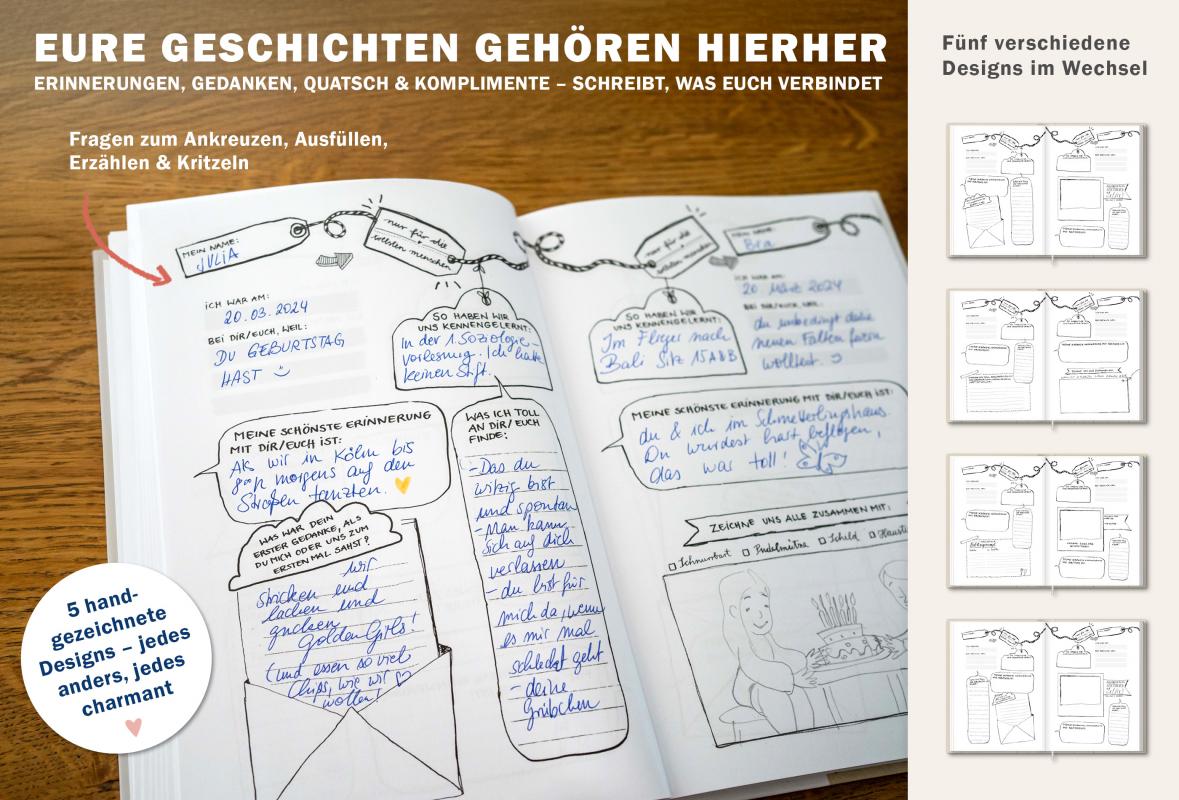 EURE GESCHICHTEN GEHÖREN HIERHER
ERINNERUNGEN, GEDANKEN, QUATSCH & KOMPLIMENTE – SCHREIBT, WAS EUCH VERBINDET
Fragen zum Ankreuzen, Ausfüllen,
Erzählen & Kritzeln
MEIN NAME:
JULIA
nur für die
liebsten menschen
ICH WAR AM:
20.03.2024
BEI DIR/EUCH, WEIL:
DU GEBURTSTAG
HAST
SO HABEN WIR
UNS KENNENGELERNT:
In der 1. Soziologie-
vorlesung. Ich hatte
keinen Stift.
MEINE SCHÖNSTE ERINNERUNG
MIT DIR/EUCH IST:
Als wir in Köln bis
morgens auf den
Straßen tanzten.
WAS ICH TOLL
AN DIR/EUCH
FINDE:
-Das du
witzig bist
und spontan
Man kann
sich auf dich
verlassen
- du bist für
mich da, wenn
es mir mal
schlecht geht
- deine
Grübchen
WAS WAR DEIN
ERSTER GEDANKE, ALS
DU MICH ODER UNS ZUM
ERSTEN MAL SAHST?
wir
stricken und
lachen und
gucken
Golden Girls!
(und essen so viel
Chips, wie wir
wollen!
nur für die
liebsten menschen
MEIN NAME:
ICH WAR AM:
20. März 2024
BEI DIR/EUCH, WEIL:
du unbedingt deine
neuen Falten feiern
wolltest.
SO HABEN WIR
UNS KENNENGELERNT:
Im Flieger nach
Bali Sitz 15A&B
MEINE SCHÖNSTE ERINNERUNG MIT DIR/EUCH IST:
du & ich im Schmetterlingshaus.
Du wurdest fast beflogen,
das war toll!
ZEICHNE UNS ALLE ZUSAMMEN MIT:
Schnurrbart Pudelmütze Schild
5 hand-
gezeichnete
Designs – jedes
anders, jedes
charmant
Fünf verschiedene
Designs im Wechsel